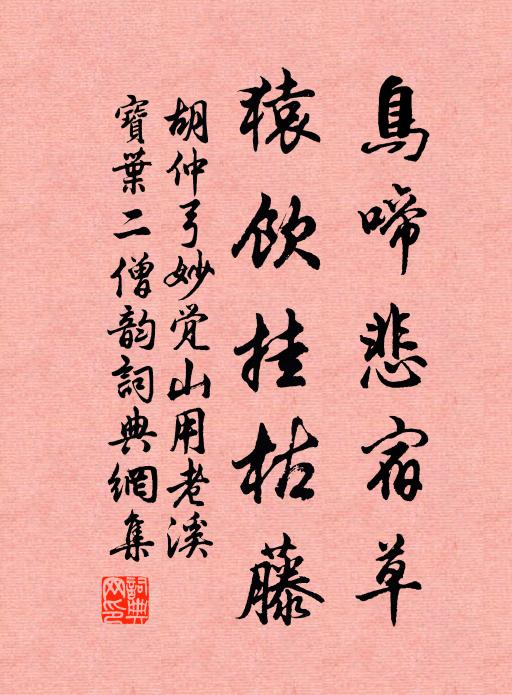 鳥啼悲宿草
猿飲挂枯藤
胡仲弓妙觉山用老溪
寶葉二僧韵詞典網集
詞典网印